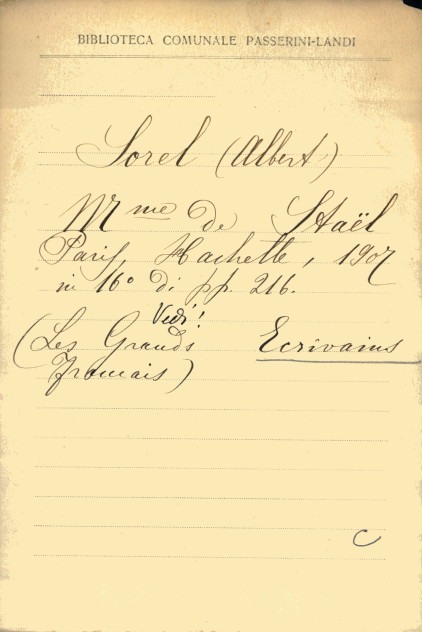 BIBLIOTECA COMUNALE PASSERINI-LANDI
Sorel (Albert)
Mme de Staël
Paris, Hachette, 1907
in 16° di pp. 216.
Vedi!
(Les Grands Ecrivains
français)
C